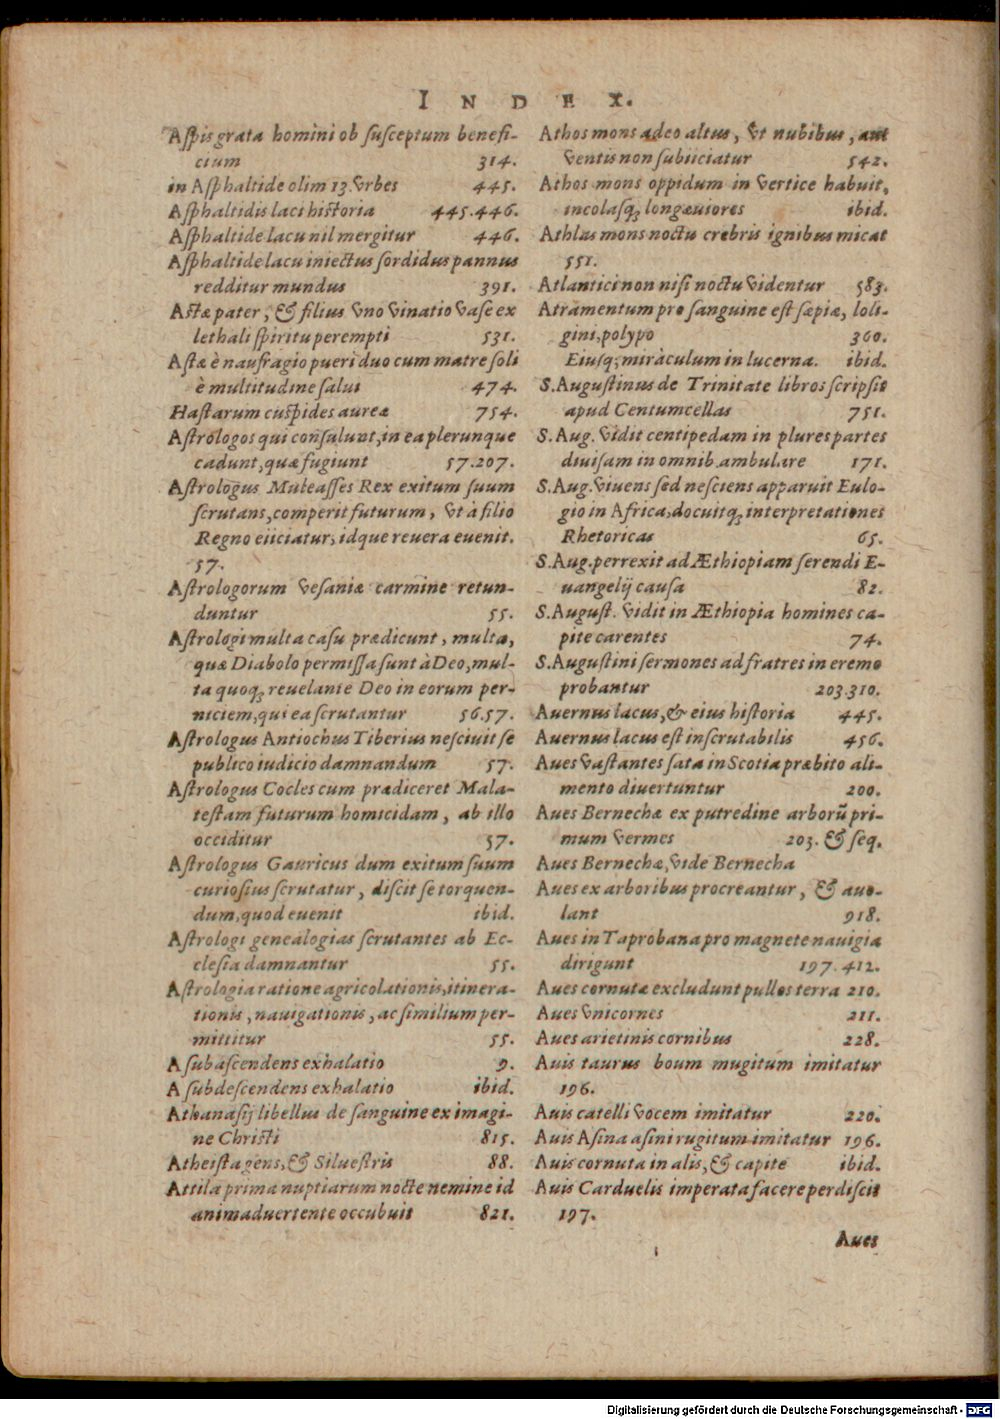 INDEX.
Aſpis grata homini ob ſuſceptum benefi-
cium 314.
in Aſphaltide olim 13. vrbes 445.
Aſphaltidis laci hiſtoria 445.446.
Aſphaltide lacu nil mergitur 446.
Aſphaltide lacu iniectus ſordidus pannus
redditur mundus 391.
Aſtæ pater, & filius vno vinatio vaſe ex
lethali ſpiritu perempti 531.
Aſtæ è naufragio pueri duo cum matre ſoli
è multitudine ſalui 474.
Haſtarum cuſpides aureæ 754.
Aſtrologos qui conſulunt, in ea plerunque
cadunt, quæ fugiunt 57.207.
Aſtrologus Muleaſſes Rex exitum ſuum
ſcrutans, comperit futurum, vt à filio
Regno eiiciatur, idque reuera euenit.
57.
Aſtrologorum veſaniæ carmine retun-
duntur 55.
Aſtrologi multa caſu prædicunt, multa,
quæ Diabolo permiſſa ſunt à Deo, mul-
ta quoq; reuelante Deo in eorum per-
niciem, qui ea ſcrutantur 56.57.
Aſtrologus Antiochus Tiberius neſciuit ſe
publico iudicio damnandum 57.
Aſtrologus Cocles cum prædiceret Mala-
teſtam futurum homicidam, ab illo
occiditur 57.
Aſtrologus Gauricus dum exitum ſuum
curioſius ſcrutatur, diſcit ſe torquen-
dum, quod euenit ibid.
Aſtrologi genealogias ſcrutantes ab Ec-
cleſia damnantur 55.
Aſtrologia ratione agricolationis, itinera-
tionis, nauigationis, ac ſimilium per-
mittitur 55.
A ſubaſcendens exhalatio 9.
A ſubdeſcendens exhalatio ibid.
Athanaſij libellus de ſanguine ex imagi-
ne Chriſti 815.
Atheiſta gens, & Silueſtris 88.
Attila prima nuptiarum nocte nemine id
animaduertente occubuit 821.
Athos mons adeo altus, vt nubibus, aut
ventis non ſubiiciatur 542.
Athos mons oppidum in vertice habuit,
incolaſq; longæuiores ibid.
Athlas mons noctu crebris ignibus micat
551.
Atlantici non niſi noctu videntur 583.
Atramentum pro ſanguine eſt ſæpiæ, loli-
gini, polypo 360.
Eiuſq; miràculum in lucerna. ibid.
S. Auguſtinus de Trinitate libros ſcripſit
apud Centumcellas 751.
S. Aug. vidit centipedam in plures partes
diuiſam in omnib. ambulare 171.
S. Aug. viuens ſed neſciens apparuit Eulo-
gio in Africa, docuitq; interpretationes
Rhetoricas 65.
S. Aug. perrexit ad Æthiopiam ſerendi E-
uangelij cauſa 82.
S. Auguſt. vidit in Æthiopia homines ca-
pite carentes 74.
S. Auguſtini ſermones ad fratres in eremo
probantur 203.310.
Auernus lacus, & eius hiſtoria 445.
Auernus lacus eſt inſcrutabilis 456.
Aues vaſtantes ſata in Scotia præbito ali-
mento diuertuntur 200.
Aues Bernechæ ex putredine arborũ pri-
mum vermes 203. & ſeq.
Aues Bernechæ, vide Bernecha
Aues ex arboribus procreantur, & auo-
lant 918.
Aues in Taprobana pro magnete nauigia
dirigunt 197.412.
Aues cornutæ excludunt pullos terra 210.
Aues vnicornes 211.
Aues arietinis cornibus 228.
Auis taurus boum mugitum imitatur
196.
Auis catelli vocem imitatur 220.
Auis Aſina aſini rugitum imitatur 196.
Auis cornuta in alis, & capite ibid.
Auis Carduelis imperata facere perdiſcit
197.
Aues
Digitalisierung gefördert durch die Deutsche Forschungsgemeinschaft - DFG